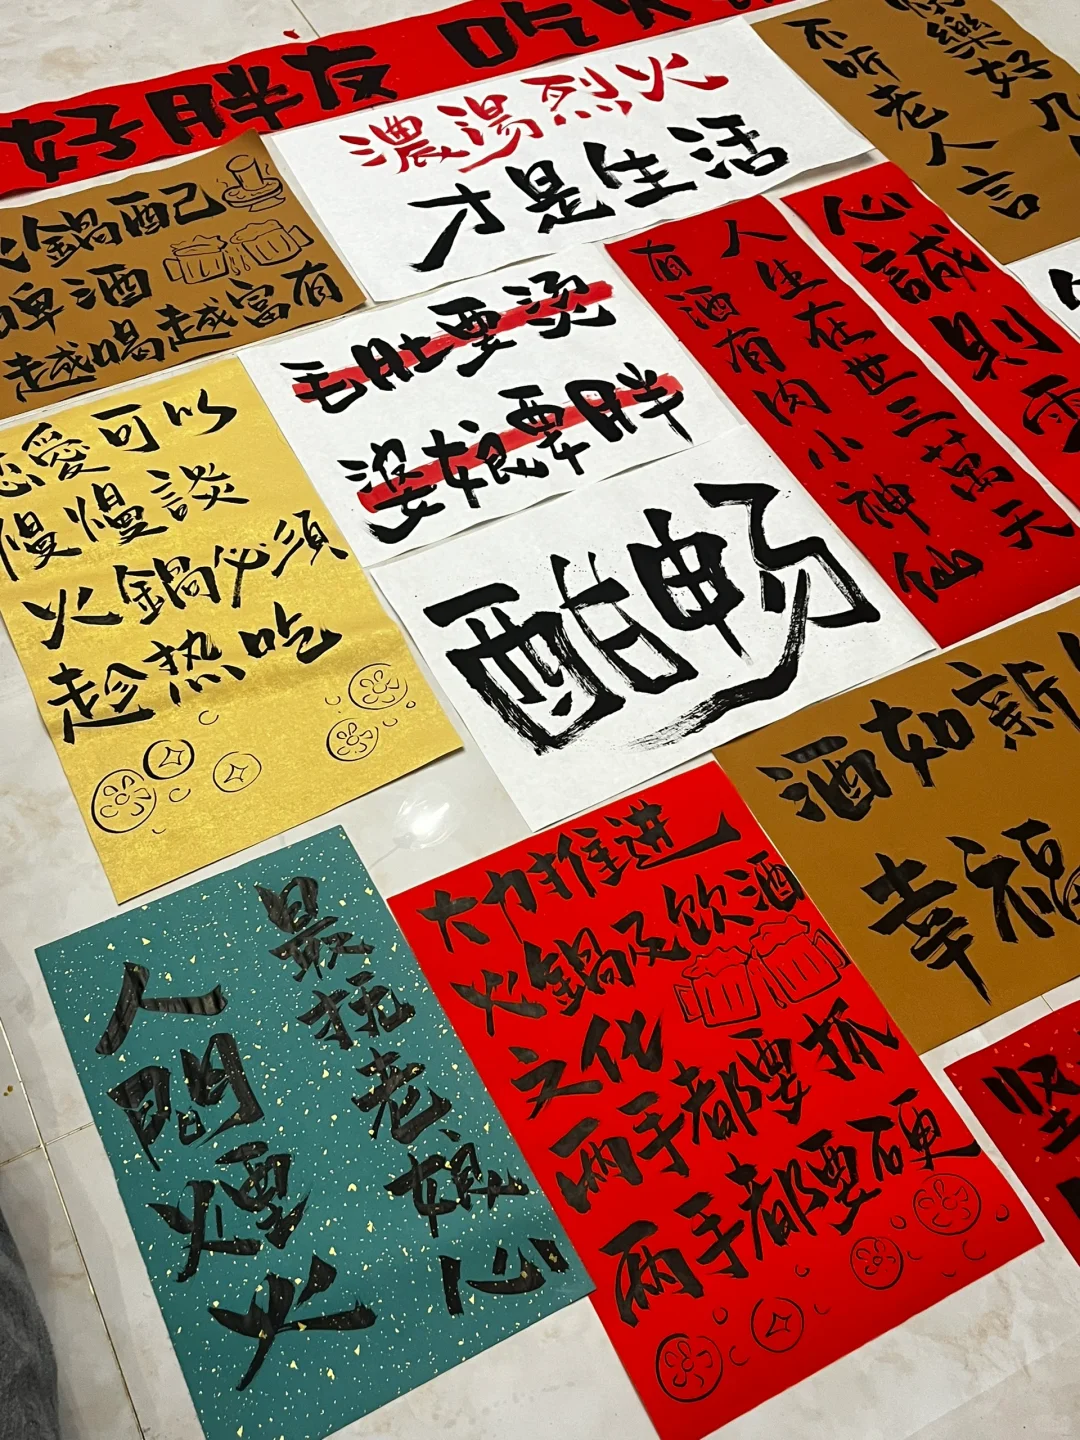 好胖友 吃火
濃湯烈火
才是生活
快樂好几
不听老人言
火鍋配
啤酒
越喝越富有
毛肚要烫
婆娘要胖
人生在世三萬天
有酒有肉小神仙
心誠則
恋愛可以
慢慢談
火鍋必須
趁热吃
酣畅
酒如新
幸福
最抚老娘心
人間煙火
大力推进
火鍋及饮酒
文化
兩手都要抓
兩手都要硬
坚